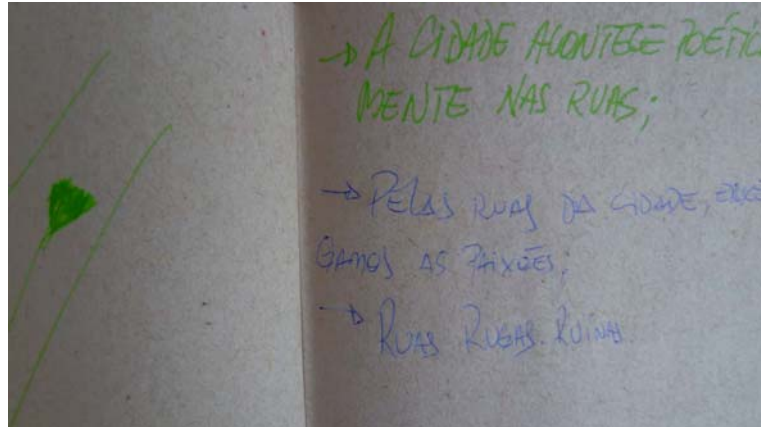 → A CIDADE ACONTECE POÉTIC
MENTE NAS RUAS;
→ PELAS RUAS DA CIDADE,
GAMOS AS PAIXÕES;
→ RUAS RUGAS. RUÍNAS